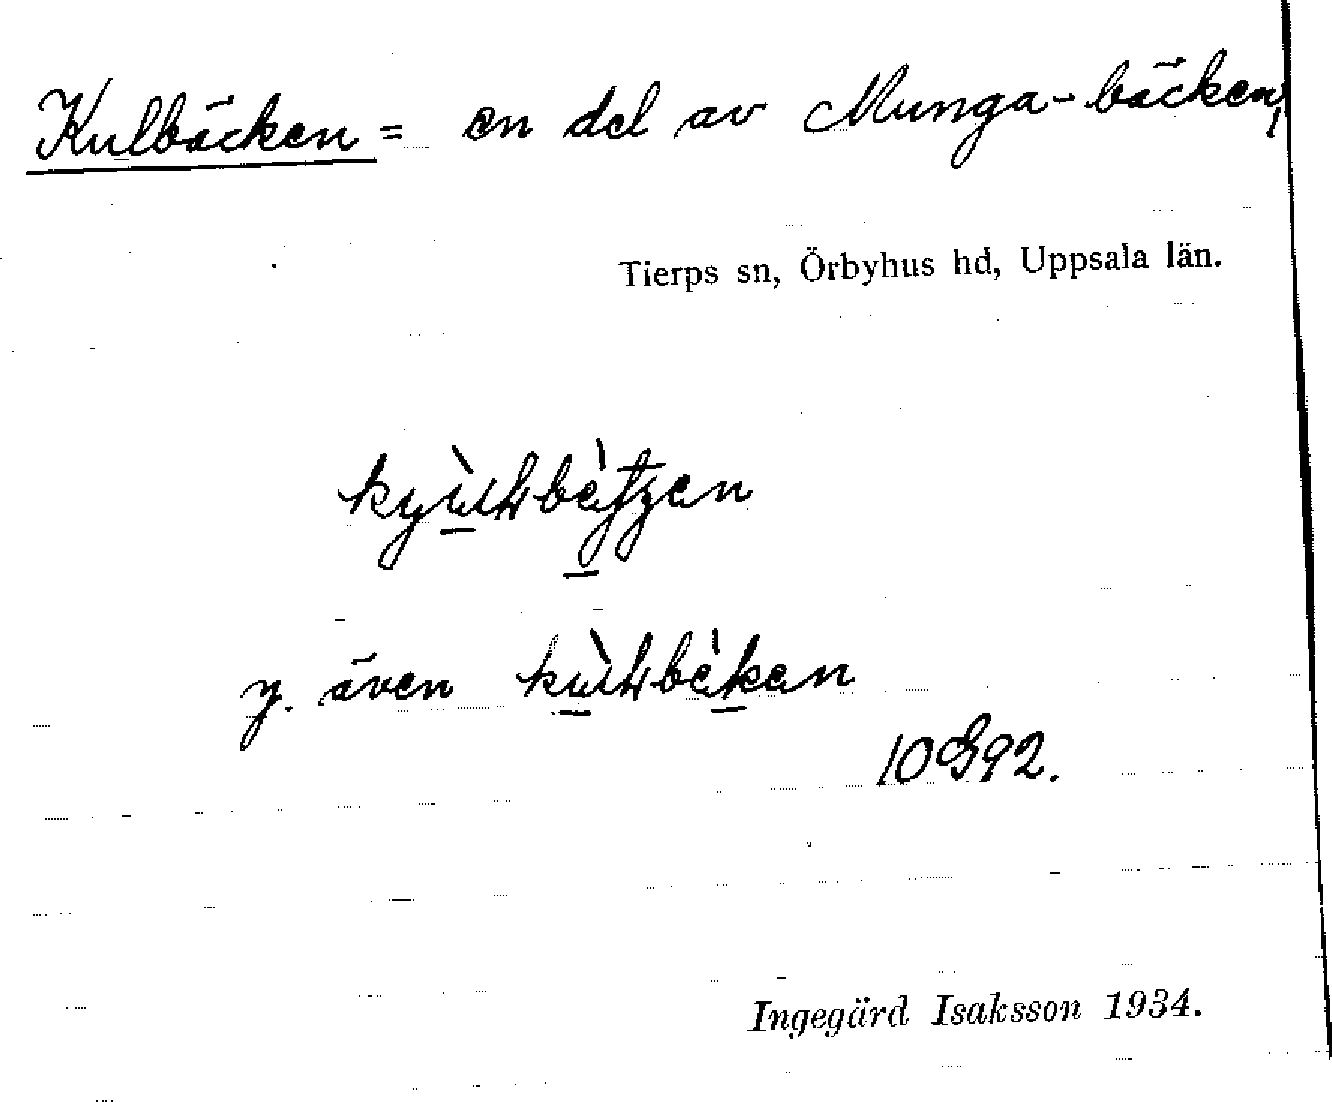 Kulbäcken = en del av Munga-bäcken,
Tierps sn, Örbyhus hd, Uppsala län.
y. även
10G92.
Ingegärd Isaksson 1934.